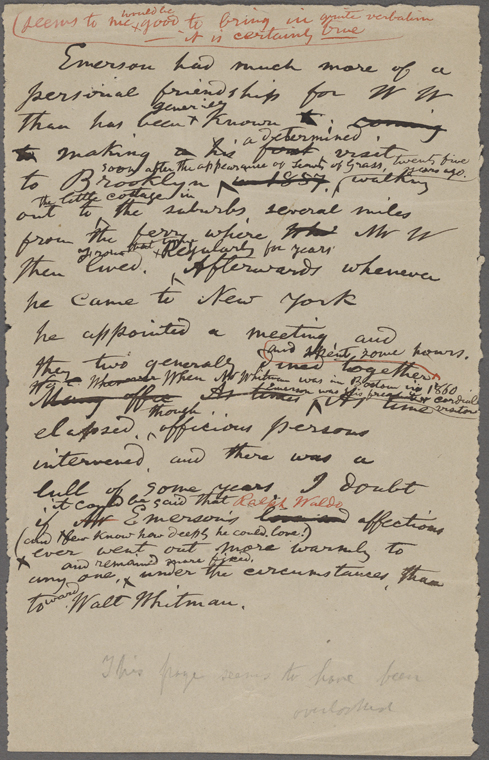 (seems to me would be good to bring in quite verbatim
it is certainly true
Emerson had much more of a
personal friendship for W W
generies
than has been known to coming
a determined
to making a his first visit
soon after the appearance of Leaves of Grass, twenty five years ago.
to Brooklyn in 1857, (walking
the little cottage in
out to the suburbs, several miles
from the ferry, where Mr W
then lived. Regularly for years
Afterwards whenever
he came to New York
he appointed a meeting and
and spent some hours.
they two generally dined together
When Mr Whitman was in Boston in 1860
Emerson was his frequent & cordial visitor
At times As time
though
elapsed, officious persons
intervened, and there was a
lull of some years I doubt
it could be said that Ralph Waldo
if Mr Emerson's love and affections
(and I know how deeply he could love!)
ever went out more warmly to
and remained more fixed,
any one, under the circumstances, than
toward Walt Whitman.
This page seems to have been
overlooked